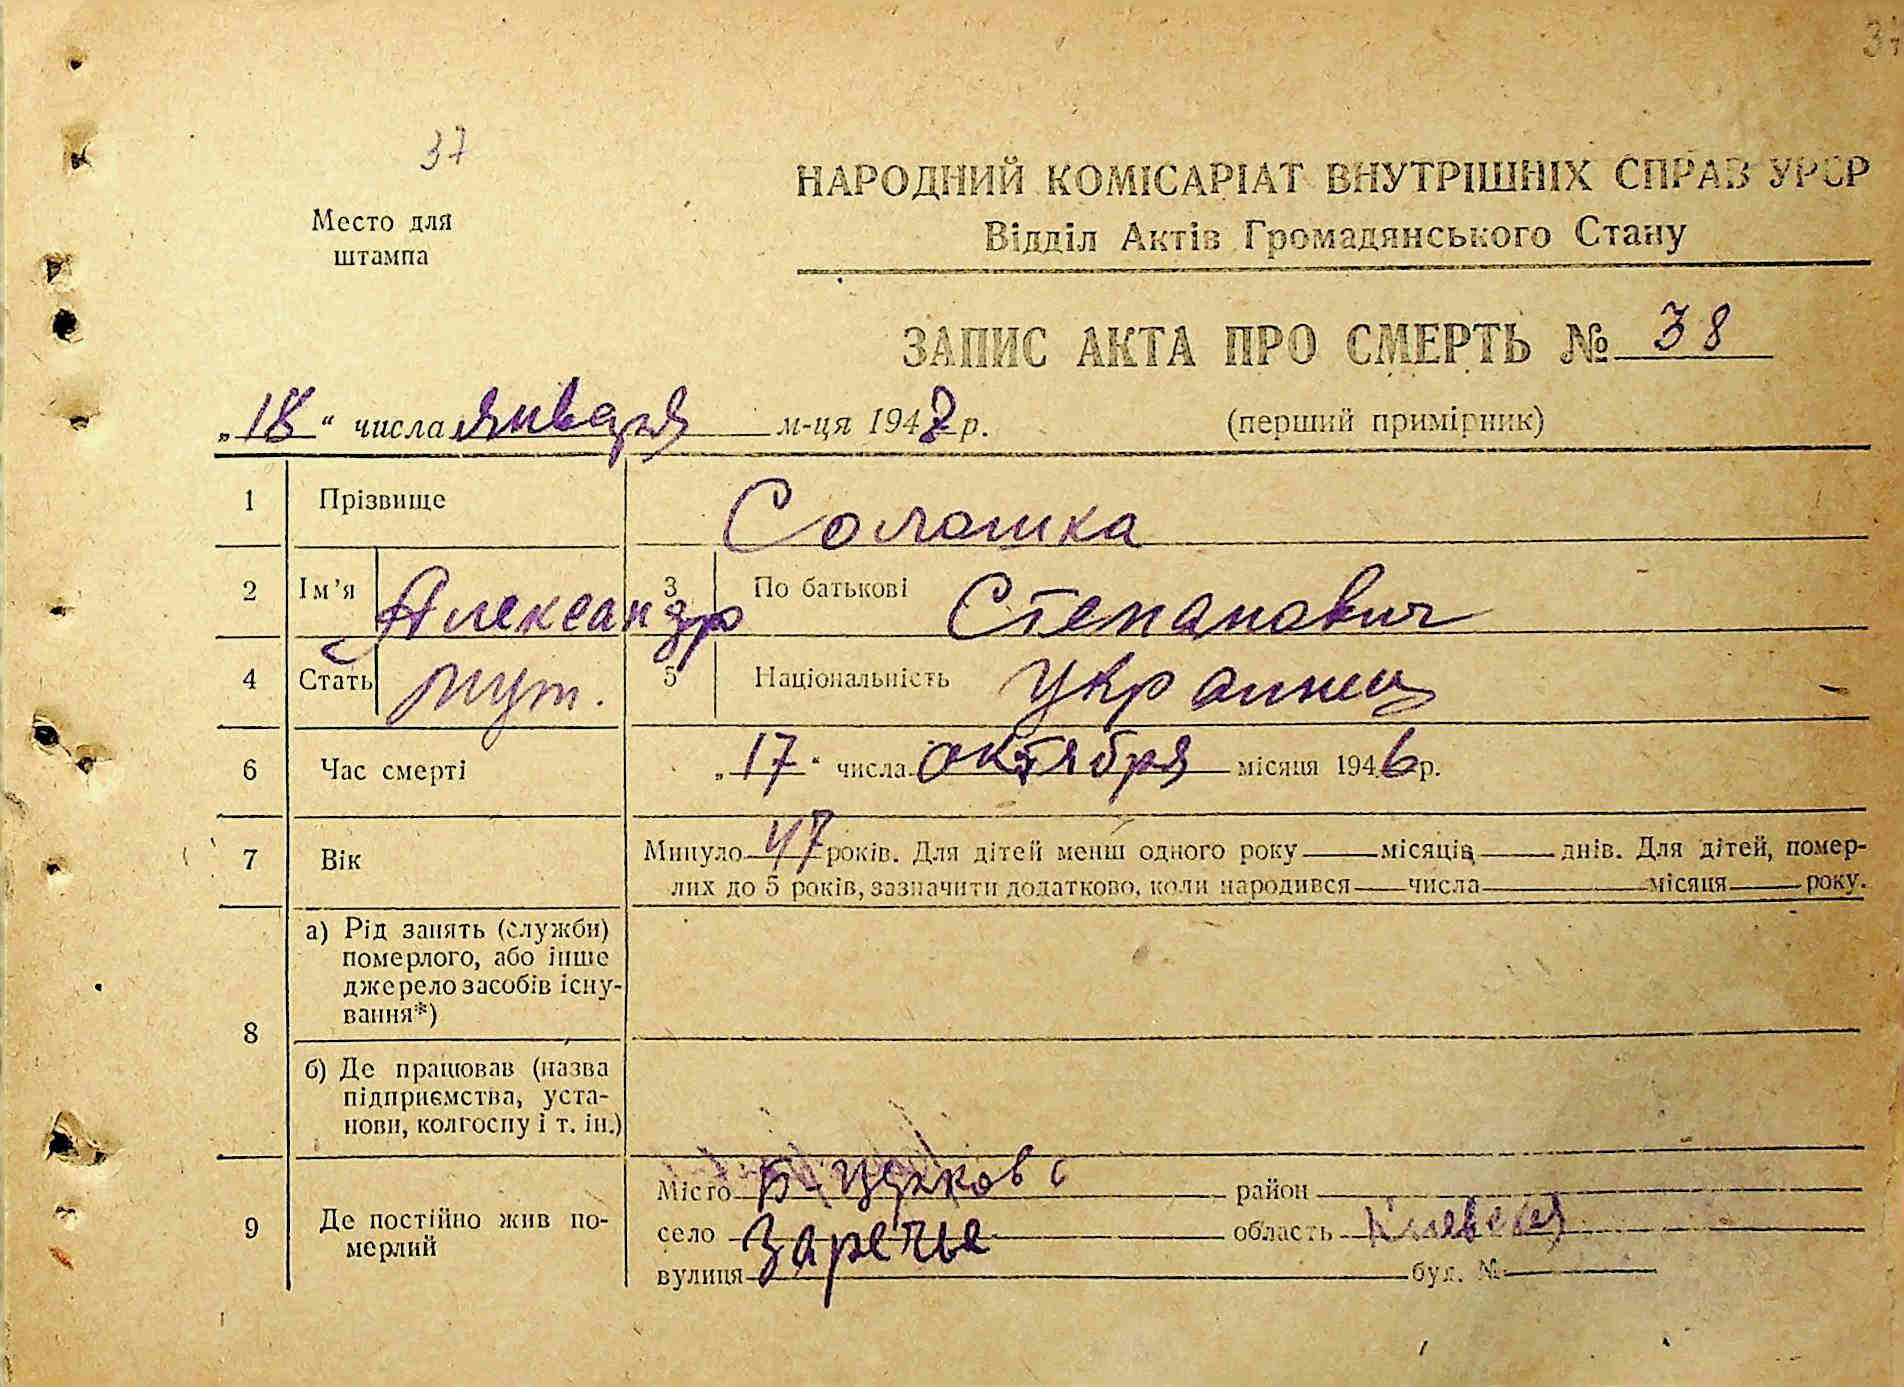 37
37
Место для
штампа
НАРОДНИЙ КОМІСАРІАТ ВНУТРІШНІХ СПРАВ УРСР
Відділ Актів Громадянського Стану
ЗАПИС АКТА ПРО СМЕРТЬ № 38
„18" числа января м-ця 1947 р. (перший примірник)
1 Прізвище Солошка
2 Ім'я Александр 3 По батькові Степанович
4 Стать муж. 5 Національність Украинец
6 Час смерті „17" числа октября місяця 1946 р.
7 Вік Минуло 47 років. Для дітей менш одного року місяців днів. Для дітей, помер-
лих до 5 років, зазначити додатково, коли народився числа місяця року.
8 а) Рід занять (служби)
померлого, або інше
джерело засобів існу-
вання*)
б) Де працював (назва
підприємства, уста-
нови, колгоспу і т. ін.)
9 Де постійно жив по-
мерлий
Місто Б-Церков район
село Заречье область Киевск
вулиця буд. №